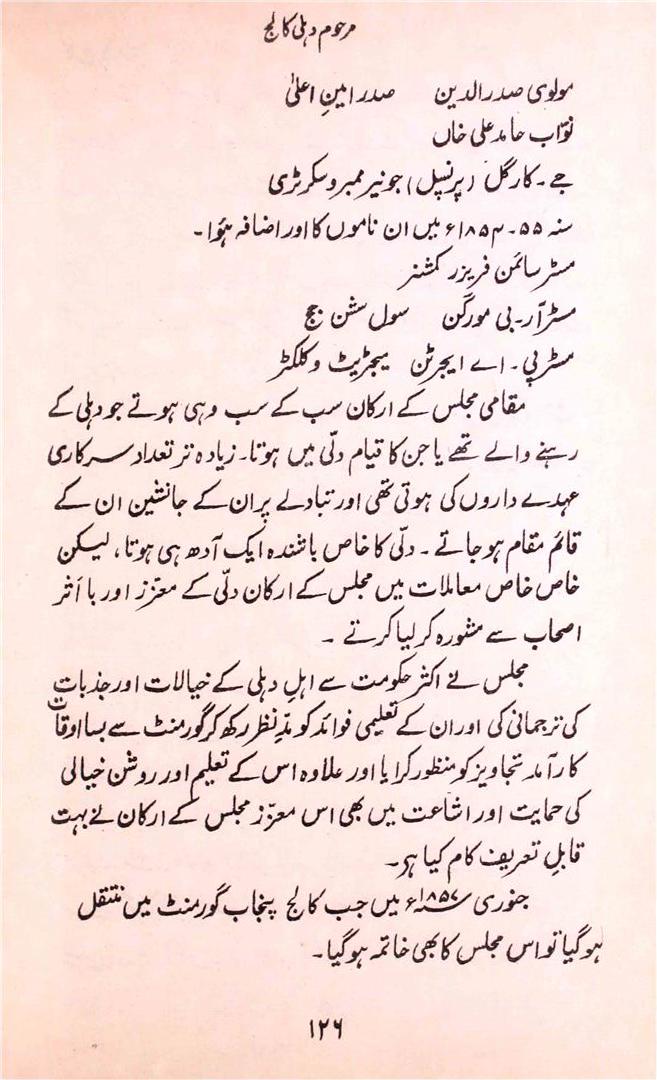 مرحوم دہلی کالج
مولوی صدر الدین صدر امینِ اعلیٰ
نوّاب حامد علی خاں
جے۔ کارگل (پرنسپل) جونیر ممبر و سکرٹری
سنہ ۵۵۔۱۸۵۴ء میں ان ناموں کا اور اضافہ ہؤا۔
مسٹر سائمن فریزر کمشنر
مسٹر آر۔ بی مورگن سول سشن جج
مسٹر پی۔ اے ایجرٹن میجٹریٹ و کلکٹر
مقامی مجلس کے ارکان سب کے سب وہی ہوتے جو دہلی کے
رہنے والے تھے یا جن کا قیام دلّی میں ہوتا۔ زیادہ تر تعداد سرکاری
عہدے داروں کی ہوتی تھی اور تبادلے پر ان کے جانشین ان کے
قائم مقام ہو جاتے۔ دلّی کا خاص باشندہ ایک آدھ ہی ہوتا، لیکن
خاص خاص معاملات میں مجلس کے ارکان دلّی کے معزّز اور با اثر
اصحاب سے مشورہ کر لیا کرتے۔
مجلس نے اکثر حکومت سے اہلِ دہلی کے خیالات اور جذبات
کی ترجمانی کی اور ان کے تعلیمی فوائد کو مدِّنظر رکھ کر گورمنٹ سے بسا اوقات
کارآمد تجاویز کو منظور کرایا اور علاوہ اس کے تعلیم اور روشن خیالی
کی حمایت اور اشاعت میں بھی اس معزّز مجلس کے ارکان نے بہت
قابلِ تعریف کام کیا ہو۔
جنوری سنہ ۱۸۵۷ء میں جب کالج پنجاب گورمنٹ میں منتقل
ہو گیا تو اس مجلس کا بھی خاتمہ ہو گیا۔
۱۲۶